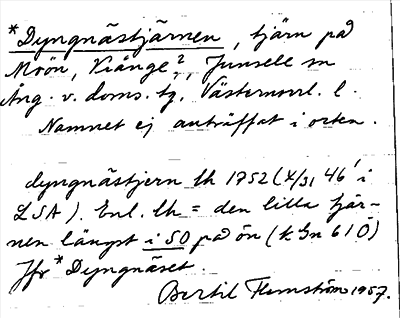 *Dyngnästjärnen, tjärn på
Moön, Krånge?, Junsele sn
Ång. v. doms. tg, Västernorrl. l.
Namnet ej anträffat i orten.
dyngnästjern lh 1752 (X/31 46' i
LSA). Enl. lh = den lilla tjär-
nen längst i SO på ön (k Gn 61 Ö)
Jfr *Dyngnäset.
Bertil Flemström 1957.